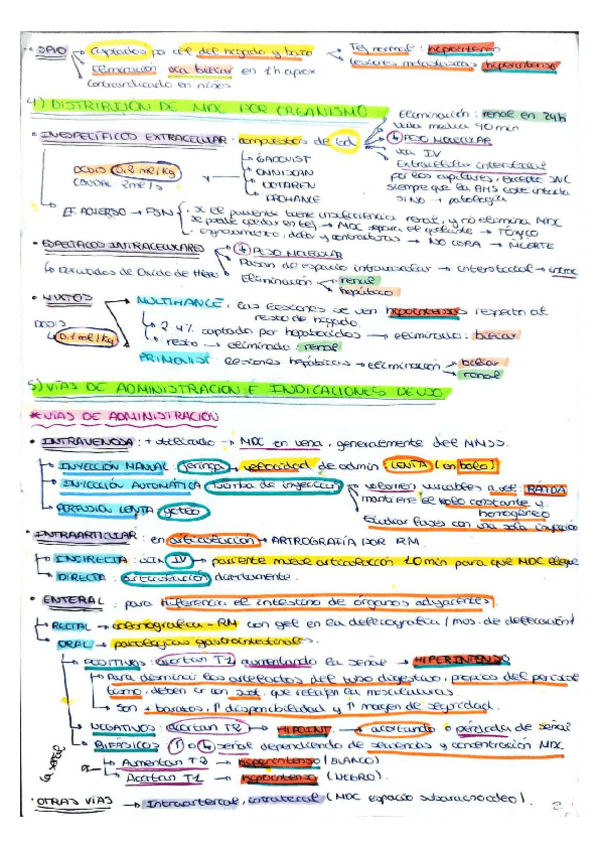 · SPIO → Captados por cel del hígado y bazo → Tej normal: hipointenso
Eliminación vía biliar en 1h aprox → lesiones metastásicas hiperintenso
Contraindicado en niños
4) DISTRIBUCIÓN DE MDC POR ORGANISMO
Eliminación: renal en 24h
Vida media 90 min
PESO MOLECULAR
vía IV
Extracelular intersticial
por los capilares, excepto SNC
siempre que la BHE esté intacta
SI NO → patología
· INESPECÍFICOS EXTRACELULAR: compuestos de Gd
DOSIS 0.2 ml/kg
CAUDAL 2ml/s
→ GADOVIST
→ OMNISCAN
→ DOTAREN
→ PROHANCE
EF. ADVERSO → FSN · si el paciente tiene insuficiencia renal, y no elimina MDC
se puede quedar en tej → MDC separa el quelante → TÓXICO
· engrosamiento, dolor y contracturas → NO CURA → MUERTE
· ESPECÍFICOS INTRACELULARES → PESO MOLECULAR
↳ Derivados de Óxido de Hierro → Pasan de espacio intravascular → intersticial → intrac
Eliminación → renal
hepático
· MIXTOS → MULTIHANCE: las lesiones se ven hipointensas respecto al
resto de hígado.
DOSIS 0.1 ml/kg
→ 2 4% captado por hepatocitos → eliminado: biliar
↳ resto → eliminado: renal
PRIMOVIST: lesiones hepáticas → eliminación → biliar
→ renal
5) VÍAS DE ADMINISTRACIÓN E INDICACIONES DE USO
* VÍAS DE ADMINISTRACIÓN
· INTRAVENOSA: + utilizado → MDC en vena, generalmente del MMSS.
→ INYECCIÓN MANUAL: jeringa → velocidad de admin: LENTA (en bolo)
→ INYECCIÓN AUTOMÁTICA bomba de inyección → volumen variables a vel. RÁPIDA
mantiene el bolo constante y
homogéneo
Estudiar fases con una sola inyección
→ PERFUSIÓN LENTA goteo
· INTRAARTICULAR: en articulación → ARTROGRAFÍA POR RM.
→ INDIRECTA: vía IV → paciente mueve articulación 10 min para que MDC llegue
→ DIRECTA: articulación directamente.
· ENTERAL: para diferenciar el intestino de órganos adyacentes.
→ RECTAL → -RM con gel en la defecografía (mas. de defecación)
→ ORAL → patologías gastrointestinales.
→ POSITIVOS: acortan T1, aumentando la señal → HIPERINTENSO
→ Para disminuir los artefactos del tubo digestivo, propios del peristal
tismo, deben ir con sust. que relajen la musculatura.
↳ Son + baratos, ↑ disponibilidad y ↑ margen de seguridad.
→ NEGATIVOS: acortan T2 → HIPOINT → acortando o pérdida de señal
→ BIFÁSICOS ↑ o ↓ señal dependiendo de secuencias y concentración MDC
la señal
→ Aumentan T2 → hiperintenso (BLANCO)
→ Acortan T1 → hipointenso (NEGRO).
· OTRAS VÍAS → Intraarterial, intratecal (MDC espacio subaracnoideo).
2.